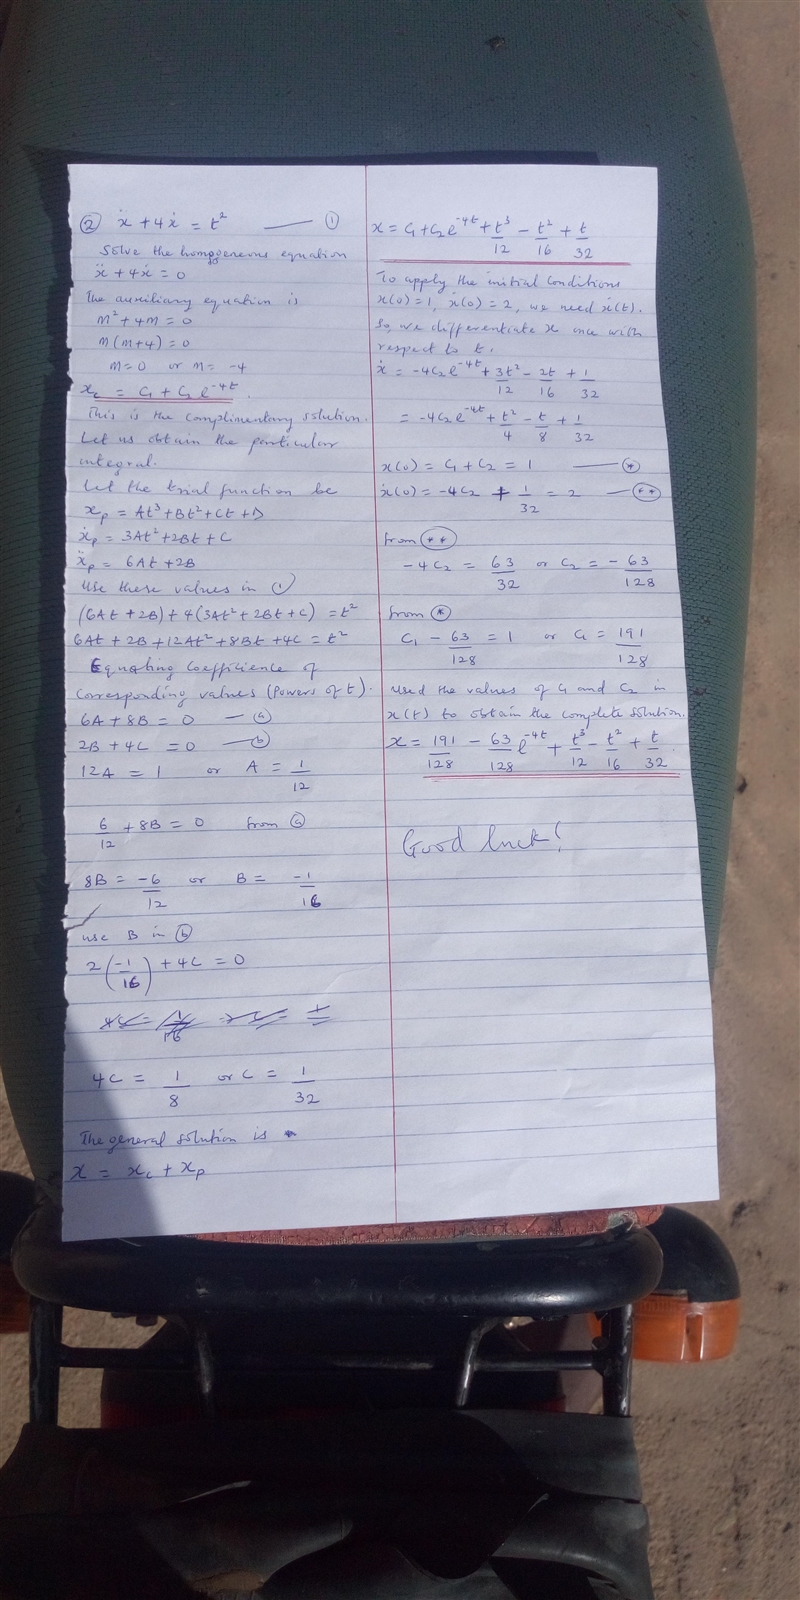 ② ẋ + 4ẋ = t² —— ①
Solve the homogeneous equation
ẍ + 4ẋ = 0
The auxiliary equation is
m² + 4m = 0
m(m+4) = 0
m = 0 or m = -4
x_c = C₁ + C₂e^{-4t}
This is the complimentary solution.
Let us obtain the particular
integral.
Let the trial function be
x_p = At³ + Bt² + Ct + D
ẋ_p = 3At² + 2Bt + C
ẍ_p = 6At + 2B
Use these values in ①
(6At + 2B) + 4(3At² + 2Bt + C) = t²
6At + 2B + 12At² + 8Bt + 4C = t²
Equating Coefficience of
corresponding values (Powers of t).
6A + 8B = 0 — ⓐ
2B + 4C = 0 — ⓑ
12A = 1 or A = 1/12
6/12 + 8B = 0 from ⓐ
8B = -6/12 or B = -1/16
use B in ⓑ
2(-1/16) + 4C = 0
4C = 1/8 or C = 1/32
The general solution is
x = x_c + x_p
x = C₁ + C₂e^{-4t} + t³/12 - t²/16 + t/32
To apply the initial conditions
x(0) = 1, ẋ(0) = 2, we need ẋ(t).
So, we differentiate x once with
respect to t.
ẋ = -4C₂e^{-4t} + 3t²/12 - 2t/16 + 1/32
= -4C₂e^{-4t} + t²/4 - t/8 + 1/32
x(0) = C₁ + C₂ = 1 —— (*)
ẋ(0) = -4C₂ + 1/32 = 2 — (**)
from (**)
-4C₂ = 63/32 or C₂ = -63/128
from (*)
C₁ - 63/128 = 1 or C₁ = 191/128
Used the values of C₁ and C₂ in
x(t) to obtain the complete solution.
x = 191/128 - 63/128 e^{-4t} + t³/12 - t²/16 + t/32.
Good luck!